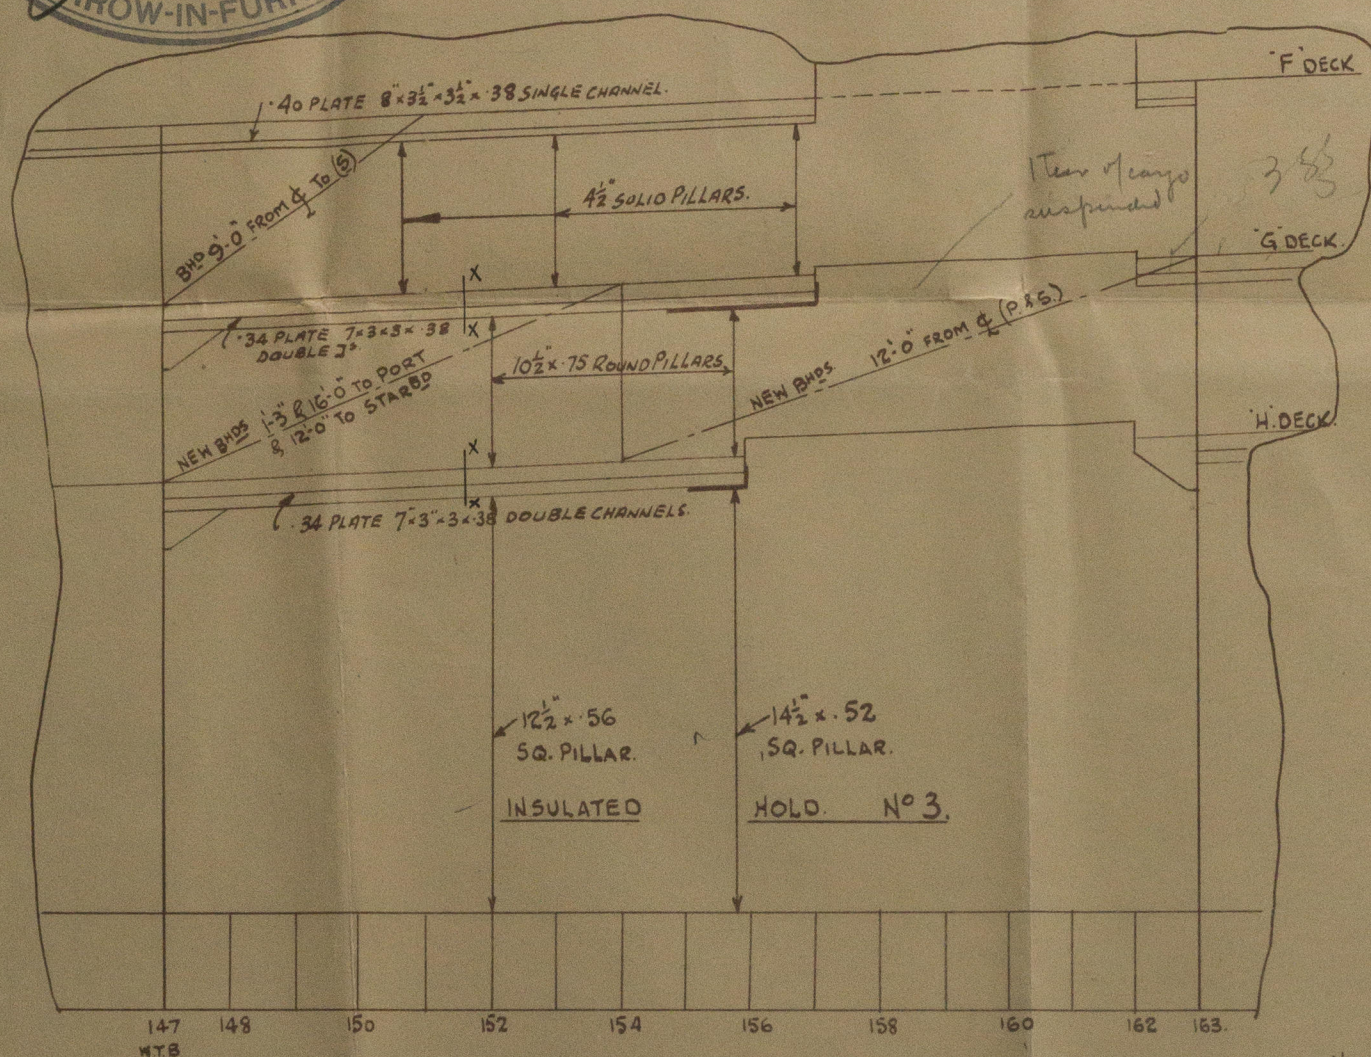 ROW-IN-FUR
"F" DECK
.40 PLATE 8"×3½"×3½"×.38 SINGLE CHANNEL.
BHD 9'-0" FROM ℄ TO (S)
4½" SOLID PILLARS.
1 Tier of cargo
suspended
"G" DECK.
X
X
.34 PLATE 7×3×3×.38
DOUBLE
10½"×.75 ROUND PILLARS.
NEW BHDS. 12'-0" FROM ℄ (P.&S.)
NEW BHDS 1'-3" & 16'-0" TO PORT
& 12'-0" TO STARBD
"H" DECK.
X
X
.34 PLATE 7"×3"×3×.38 DOUBLE CHANNELS.
12½"×.56
SQ. PILLAR.
14½"×.52
SQ. PILLAR.
INSULATED HOLD. Nº 3.
147 148 150 152 154 156 158 160 162 163.
W.T.B